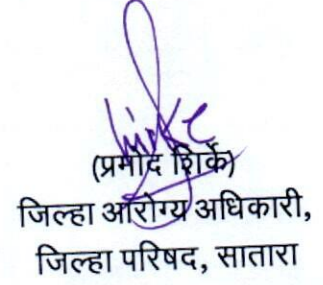 (प्रमोद शिर्के)
जिल्हा आरोग्य अधिकारी,
जिल्हा परिषद, सातारा